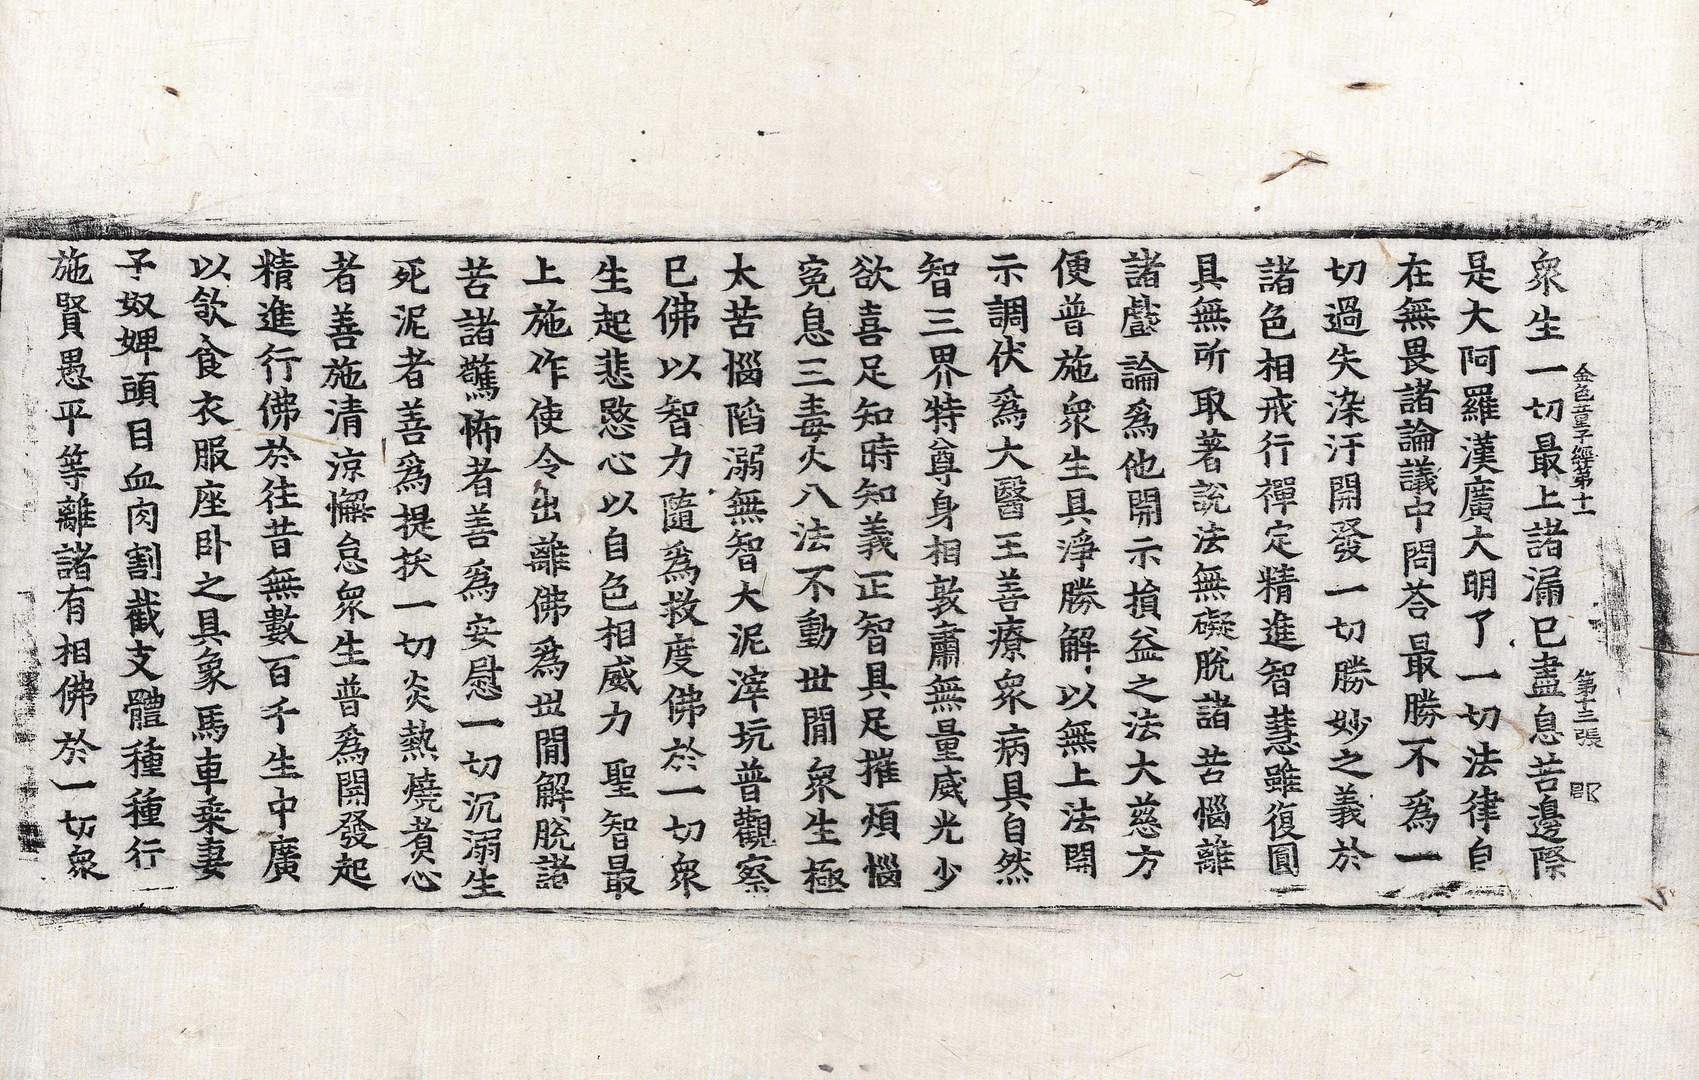 金色童子經第十一 第十三張 郡
衆生一切最上諸漏已盡息苦邊際
是大阿羅漢廣大明了一切法律自
在無畏諸論議中問荅最勝不爲一
切過失染汙開發一切勝妙之義於
諸色相戒行禪定精進智慧雖復圓
具無所取著說法無礙脫諸苦惱離
諸戲論爲他開示損益之法大慈方
便普施衆生具淨勝解以無上法開
示調伏爲大醫王善療衆病具自然
智三界特尊身相敦肅無量威光少
欲喜足知時知義正智具足摧煩惱
寃息三毒火八法不動世閒衆生極
太苦惱陷溺無智大泥滓玩普觀察
已佛以智力隨爲救度佛於一切衆
生起悲愍心以自色相威力聖智最
上施作使令出離佛爲世閒解脫諸
苦諸驚怖者善爲安慰一切沉溺生
死泥者善爲提扶一切炎熱燒煮心
者善施清涼懈怠衆生普爲開發起
精進行佛於往昔無數百千生中廣
以飲食衣服座卧之具象馬車乗妻
子奴婢頭目血肉割截支體種種行
施賢愚平等離諸有相佛於一切衆